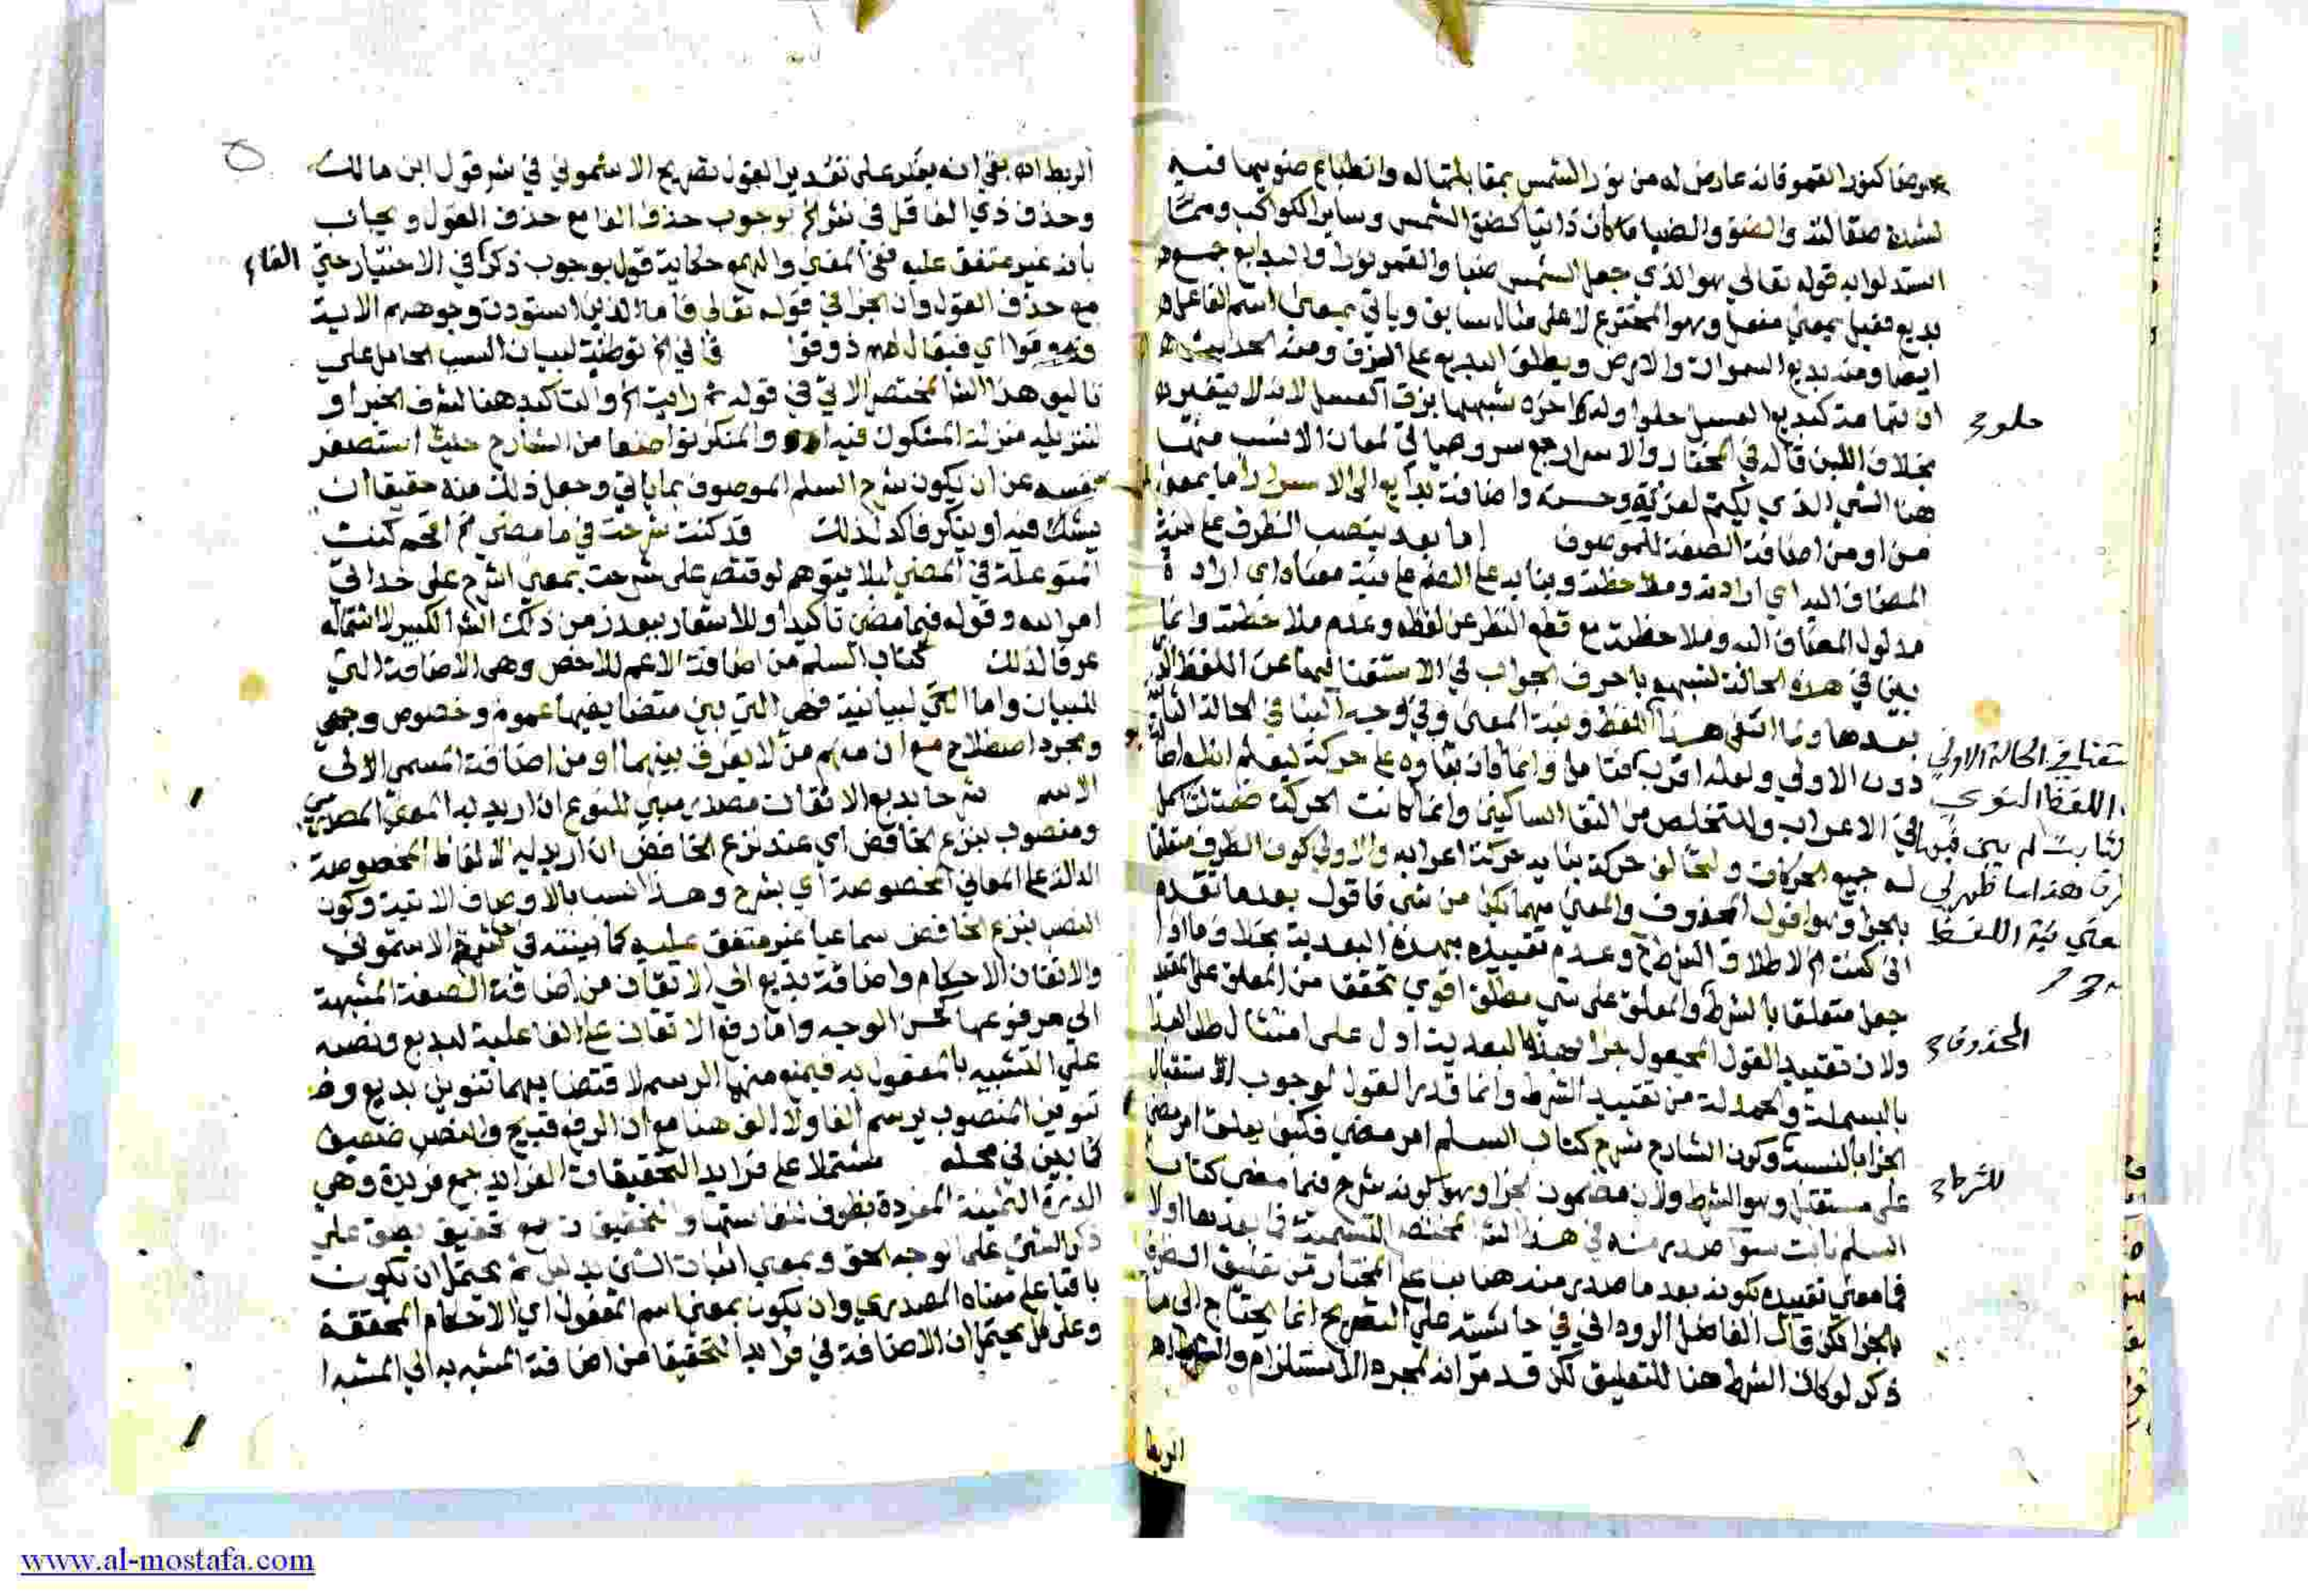 كنور القمر فانه عارض له من نور الشمس بمقابلتها له وانطباع ضوئها فيه
لشدة صقالته والضوء والضيا ما كان ذاتيا كضوء الشمس وساير الكواكب ومما
استدلوا به قوله تعالي هو الذي جعل الشمس ضيا والقمر نورا والبدايع جمع
بديع فعيل بمعني مفعل وهو المخترع لا علي مثال سابق وياتي بمعني اسم الفاعل
ايضا ومنه بديع السموات والارض ويطلق البديع علي الزق ومنه الحديث
ان تهامة كبديع العسل حلو اوله اخره شبهها بزق العسل لانه لا يتغير
بخلاف اللبن قاله في المختار والاسرار جمع سر وهو ياتي لمعان الانسب منها
هنا الشي الذي يكتم لعزته وحسنه واضافة بدايع الي الاسرار اما بمعني
من او من اضافة الصفة للموصوف اما بعد بنصب الظرف علي نية
المضاف اليه اي ارادته وملاحظته وبنايه علي الضم علي نية معناه اي ارادة
مدلول المضاف اليه وملاحظته مع قطع النظر عن لفظه وعدم ملاحظته وانما
بني في هذه الحالة لشبهه باحرف الجواب في الاستغنا بها عن اللفظ
بعدها وفي وجه البنا في الحالة الثانية
دون الاولي ولعله اقرب فتامل وانما كان بناوه علي حركة ليعلم ان له اصلا
في الاعراب وللتخلص من التقا الساكنين وانما كانت الحركة ضمة لتكمل
له جميع الحركات ولتخالف حركة بنايه حركة اعرابه والاولي كون الظرف متعلقا
بالجزا وهو اقول المحذوف والمعني مهما يكن من شي فاقول بعد ما تقدم
اني كنت الخ لاطلاق الشرط وعدم تقييده بهذه البعدية بخلاف ما اذا
جعل متعلقا بالشرط والمعلق علي شي مطلق اقوي تحققا من المعلق علي مقيد
ولان تقييد القول المجعول جزا بهذه البعدية ادل علي امتثال طلب البدا
بالبسملة والحمدلة من تقييد الشرط وانما قدر القول لوجوب استقبال
الجزا بالنسبة وكون الشارح شرح كتاب السلم امر مضي فكيف يعلق امر مضي
علي مستقبل وهو الشرط ولان مضمون الجزا وهو كونه شرح فيما مضي كتاب
السلم ثابت سوا صدر منه في هذا الشرح المختصر التسمية فما بعدها او لا
فما معني تقييده بكونه بعد ما صدر منه هنا بنا علي المختار من تعليق الظرف
بالجزا لكن قال الفاضل الروداني في حاشيته علي التصريح انما يحتاج الي ما
ذكر لو كان الشرط هنا للتعليق لكن قد مر انه لمجرد الاستلزام والشرط
الربط
حلو
في الحالة الاولي
اللفظ
لم يبني
هذا ما ظهر لي
نية اللفظ
المحذوف
للشرط
الربط انه بقي انه يعكر علي تقدير القول تصريح الاشموني في شرح قول ابن مالك
وحذف ذي الفا قل في نثر الخ بوجوب حذف الفا مع حذف القول ويجاب
بانه غير متفق عليه ففي المغني والهمع حكاية قول بوجوب ذكر في الاختيار حتي
الفا
مع حذف القول وان الجزا في قوله تعالي فاما الذين اسودت وجوههم الاية
فذوقوا اي فيقال لهم ذوقوا توطية لبيان السبب الحامل علي
تاليف هذا الشرح المختصر الاتي في قوله ثم رايت الخ والتاكيد هنا لشرف الخبر او
لتنزيله منزلة المشكوك فيه والمنكر تواضعا من الشارح حيث استصغر
نفسه عن ان يكون شرح السلم الموصوف بما ياتي وجعل ذلك منه حقيقا ان
يشك فيه او ينكر فاكد لذلك قد كنت شرحت فيما مضي الخ اقحم كنت
المتوغلة في المضي ليلا يتوهم لو اقتصر علي شرحت بمعني اشرح علي حد اتي
امر الله وقوله فيما مضي تاكيد او للاشعار ببعد زمن ذلك الشرح الكبير لاشتماله
عرفا لذلك كتاب السلم من اضافة الاعم للاخص وهي الاضافة التي
للبيان واما البيانية فهي التي بين متضايفيها عموم وخصوص وجهي
ومجرد اصطلاح مع ان منهم من لا يفرق بينهما او من اضافة المسمي الي
الاسم شرحا بديع الاتقان مصدر مبين للنوع ان اريد به المعني المصدري
ومنصوب بنزع الخافض اي عند نزع الخافض ان اريد به الالفاظ المخصوصة
الدالة علي المعاني المخصوصة اي بشرح وهذا انسب بالاوصاف الاتية وكون
النصب بنزع الخافض سماعيا غير متفق عليه كما بينته في الاشموني
والاتقان الاحكام واضافة بديع الي الاتقان من اضافة الصفة المشبهة
الي مرفوعها كحسن الوجه واما رفع الاتقان علي الفاعلية لبديع ونصبه
علي التشبيه بالمفعول به فيمنع منهما الرسم لاقتضايهما تنوين بديع
تنوين المنصوب يرسم الفا ولا الف هنا مع ان الرفع قبيح والنصب ضعيف
كما بين في محله مشتملا علي فرايد التحقيقات الفرايد جمع فريدة وهي
الدرة الثمينة المفردة بظرف لنفاستها والتحقيقات جمع تحقيق يصدق علي
ذكر الشي علي الوجه الحق وبمعني اثبات الشي بدليل ثم يحتمل ان يكون
باقيا علي معناه المصدري وان يكون بمعني اسم المفعول اي الاحكام المحققة
وعلي كل يحتمل ان الاضافة في فرايد التحقيقات من اضافة المشبه به الي المشبه
www.al-mostafa.com